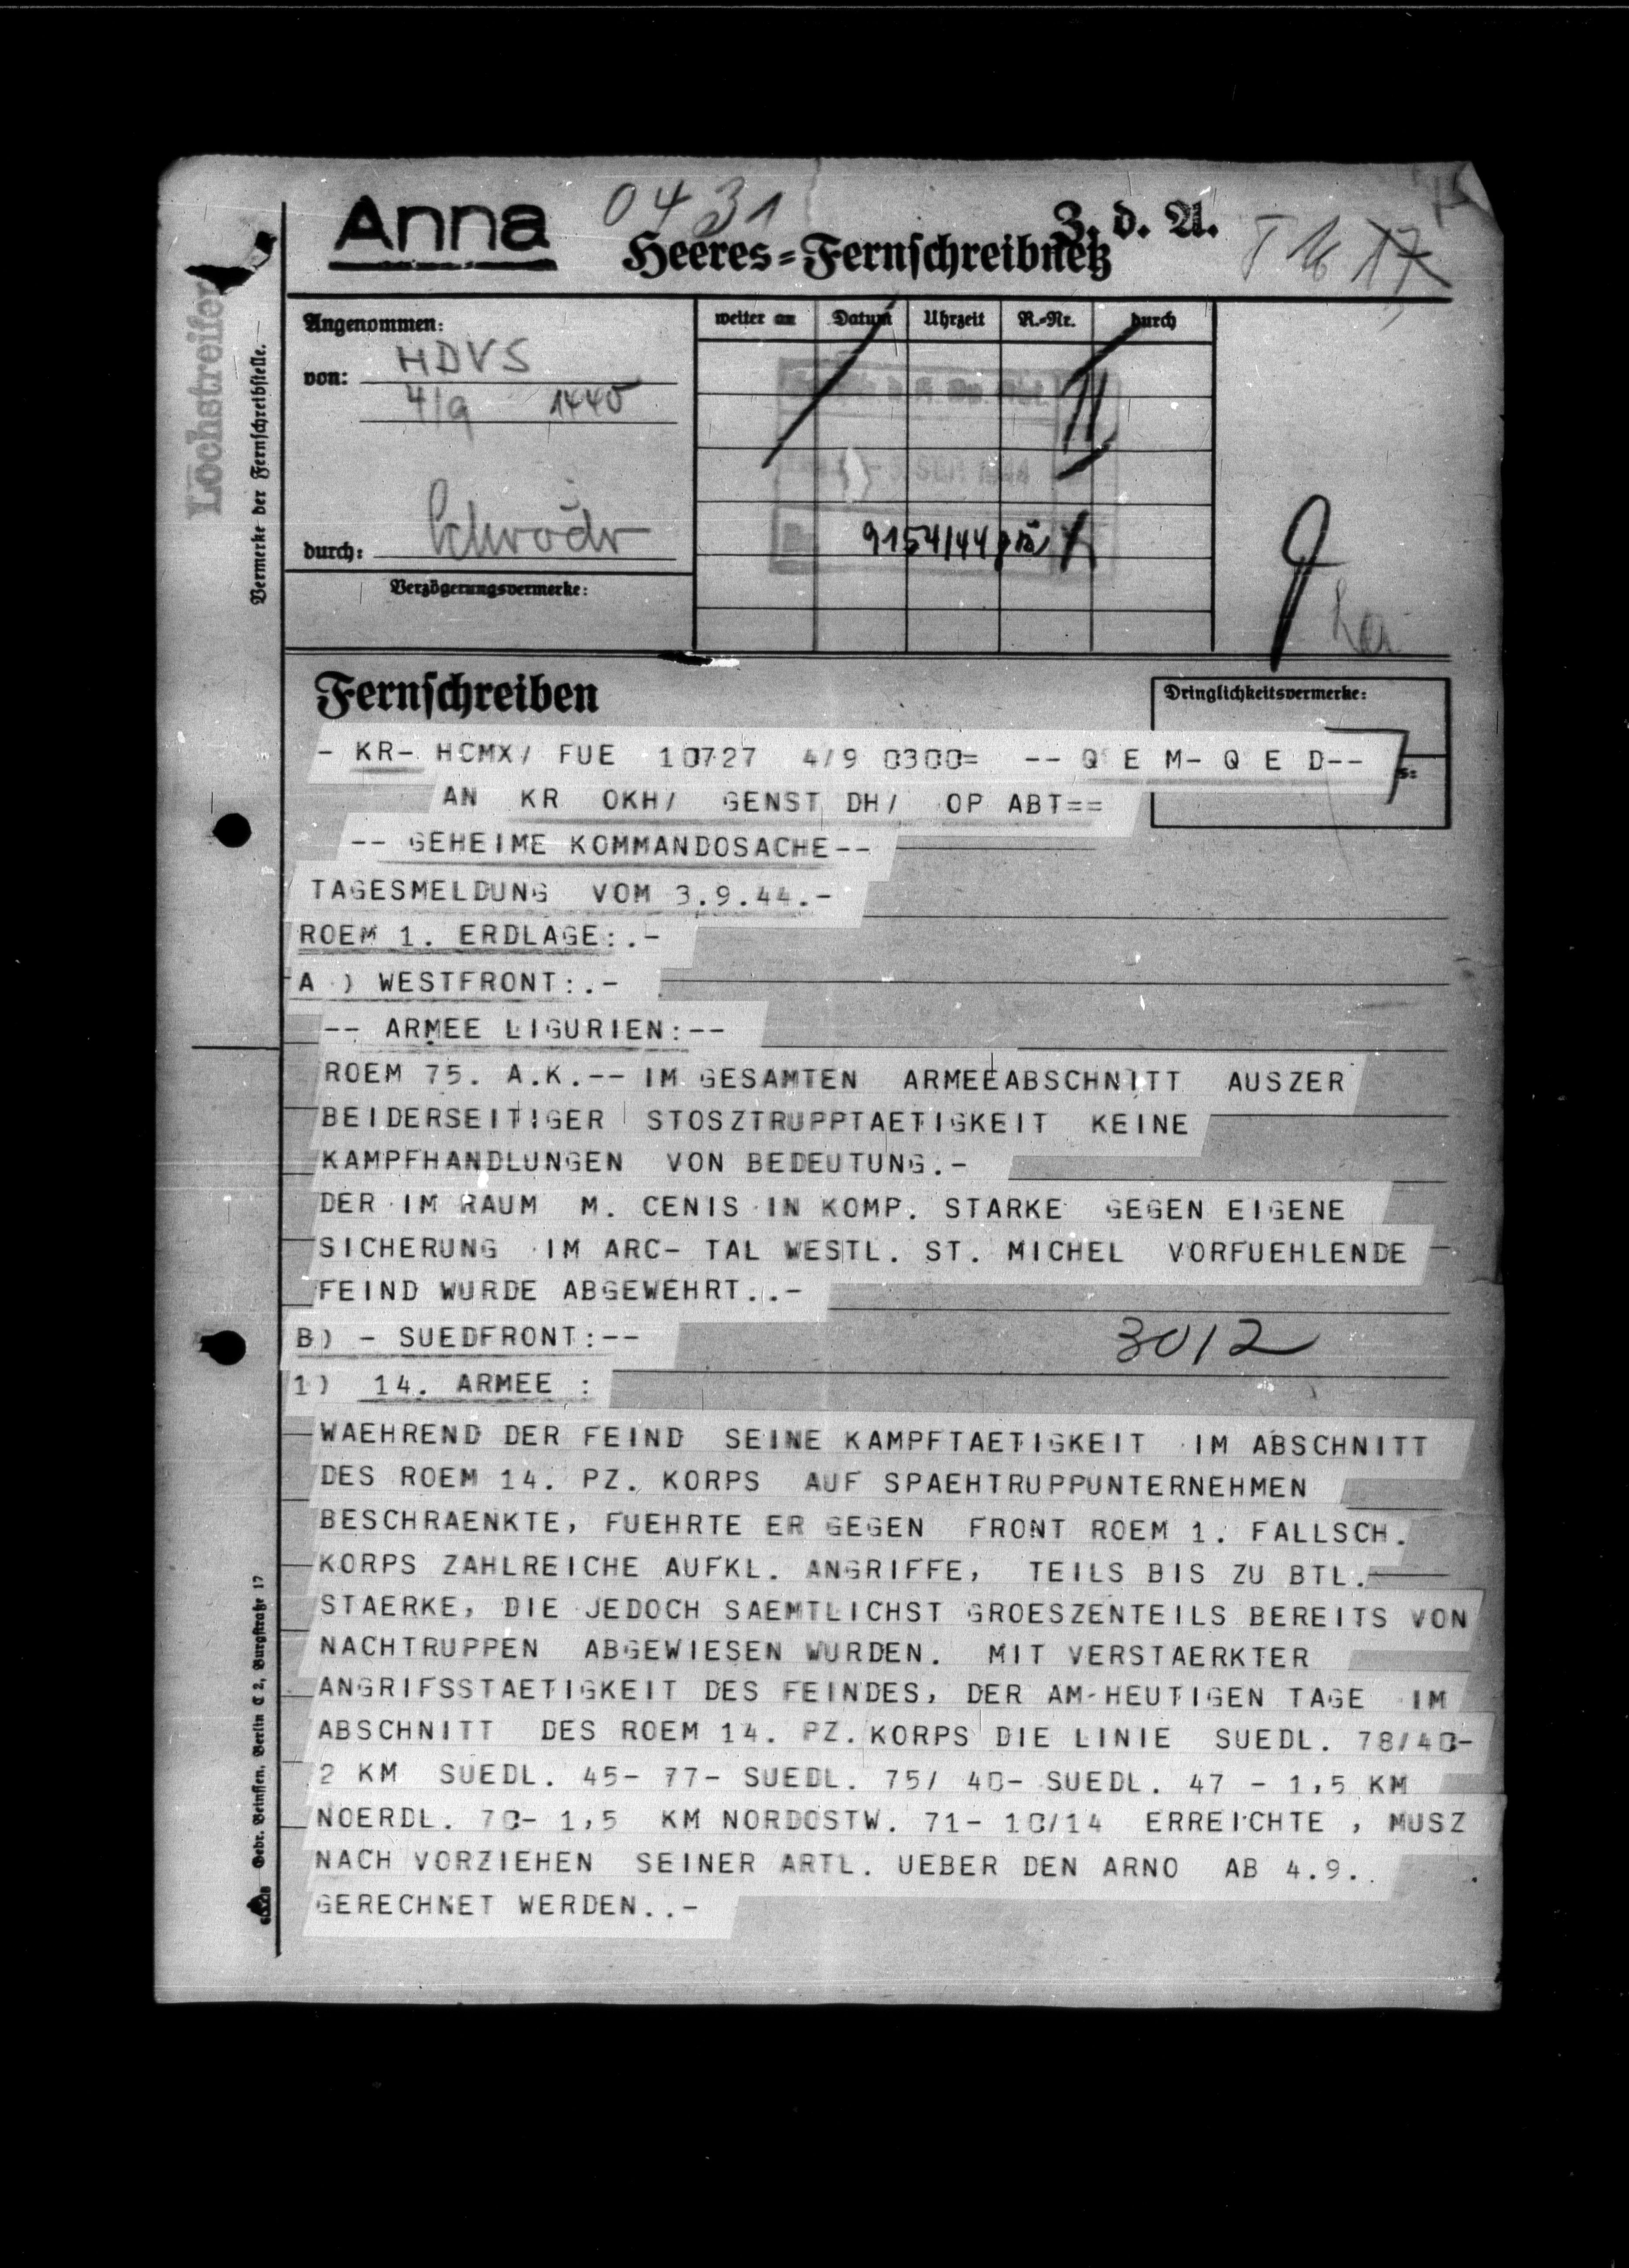 Anna 0431 Z. d. A.
Heeres-Fernschreibnetz
Lochstreifen
Vermerke der Fernschreibstelle.
Angenommen:
weiter an Datum Uhrzeit R.-Nr. durch
von: HDVS
4/9 1440
9154/44
durch:
Verzögerungsvermerke:
Fernschreiben
Dringlichkeitsvermerke:
- KR- HCMX/ FUE 10727 4/9 0300= -- Q E M- Q E D--
AN KR OKH/ GENST DH/ OP ABT==
-- GEHEIME KOMMANDOSACHE--
TAGESMELDUNG VOM 3.9.44.-
ROEM 1. ERDLAGE:.-
A ) WESTFRONT:.-
-- ARMEE LIGURIEN:--
ROEM 75. A.K.-- IM GESAMTEN ARMEEABSCHNITT AUSZER
BEIDERSEITIGER STOSZTRUPPTAETIGKEIT KEINE
KAMPFHANDLUNGEN VON BEDEUTUNG.-
DER IM RAUM M. CENIS IN KOMP. STARKE GEGEN EIGENE
SICHERUNG IM ARC- TAL WESTL. ST. MICHEL VORFUEHLENDE
FEIND WURDE ABGEWEHRT..-
B) - SUEDFRONT:--
3012
1) 14. ARMEE :
WAEHREND DER FEIND SEINE KAMPFTAETIGKEIT IM ABSCHNITT
DES ROEM 14. PZ. KORPS AUF SPAEHTRUPPUNTERNEHMEN
BESCHRAENKTE, FUEHRTE ER GEGEN FRONT ROEM 1. FALLSCH.
KORPS ZAHLREICHE AUFKL. ANGRIFFE, TEILS BIS ZU BTL.
STAERKE, DIE JEDOCH SAEMTLICHST GROESZENTEILS BEREITS VON
NACHTRUPPEN ABGEWIESEN WURDEN. MIT VERSTAERKTER
ANGRIFSSTAETIGKEIT DES FEINDES, DER AM-HEUTIGEN TAGE IM
ABSCHNITT DES ROEM 14. PZ. KORPS DIE LINIE SUEDL. 78/40-
2 KM SUEDL. 45- 77- SUEDL. 75/ 40- SUEDL. 47 - 1,5 KM
NOERDL. 70- 1,5 KM NORDOSTW. 71- 10/14 ERREICHTE , MUSZ
NACH VORZIEHEN SEINER ARTL. UEBER DEN ARNO AB 4.9.
GERECHNET WERDEN..-
Gebr. Beinssen, Berlin C 2, Burgstraße 17